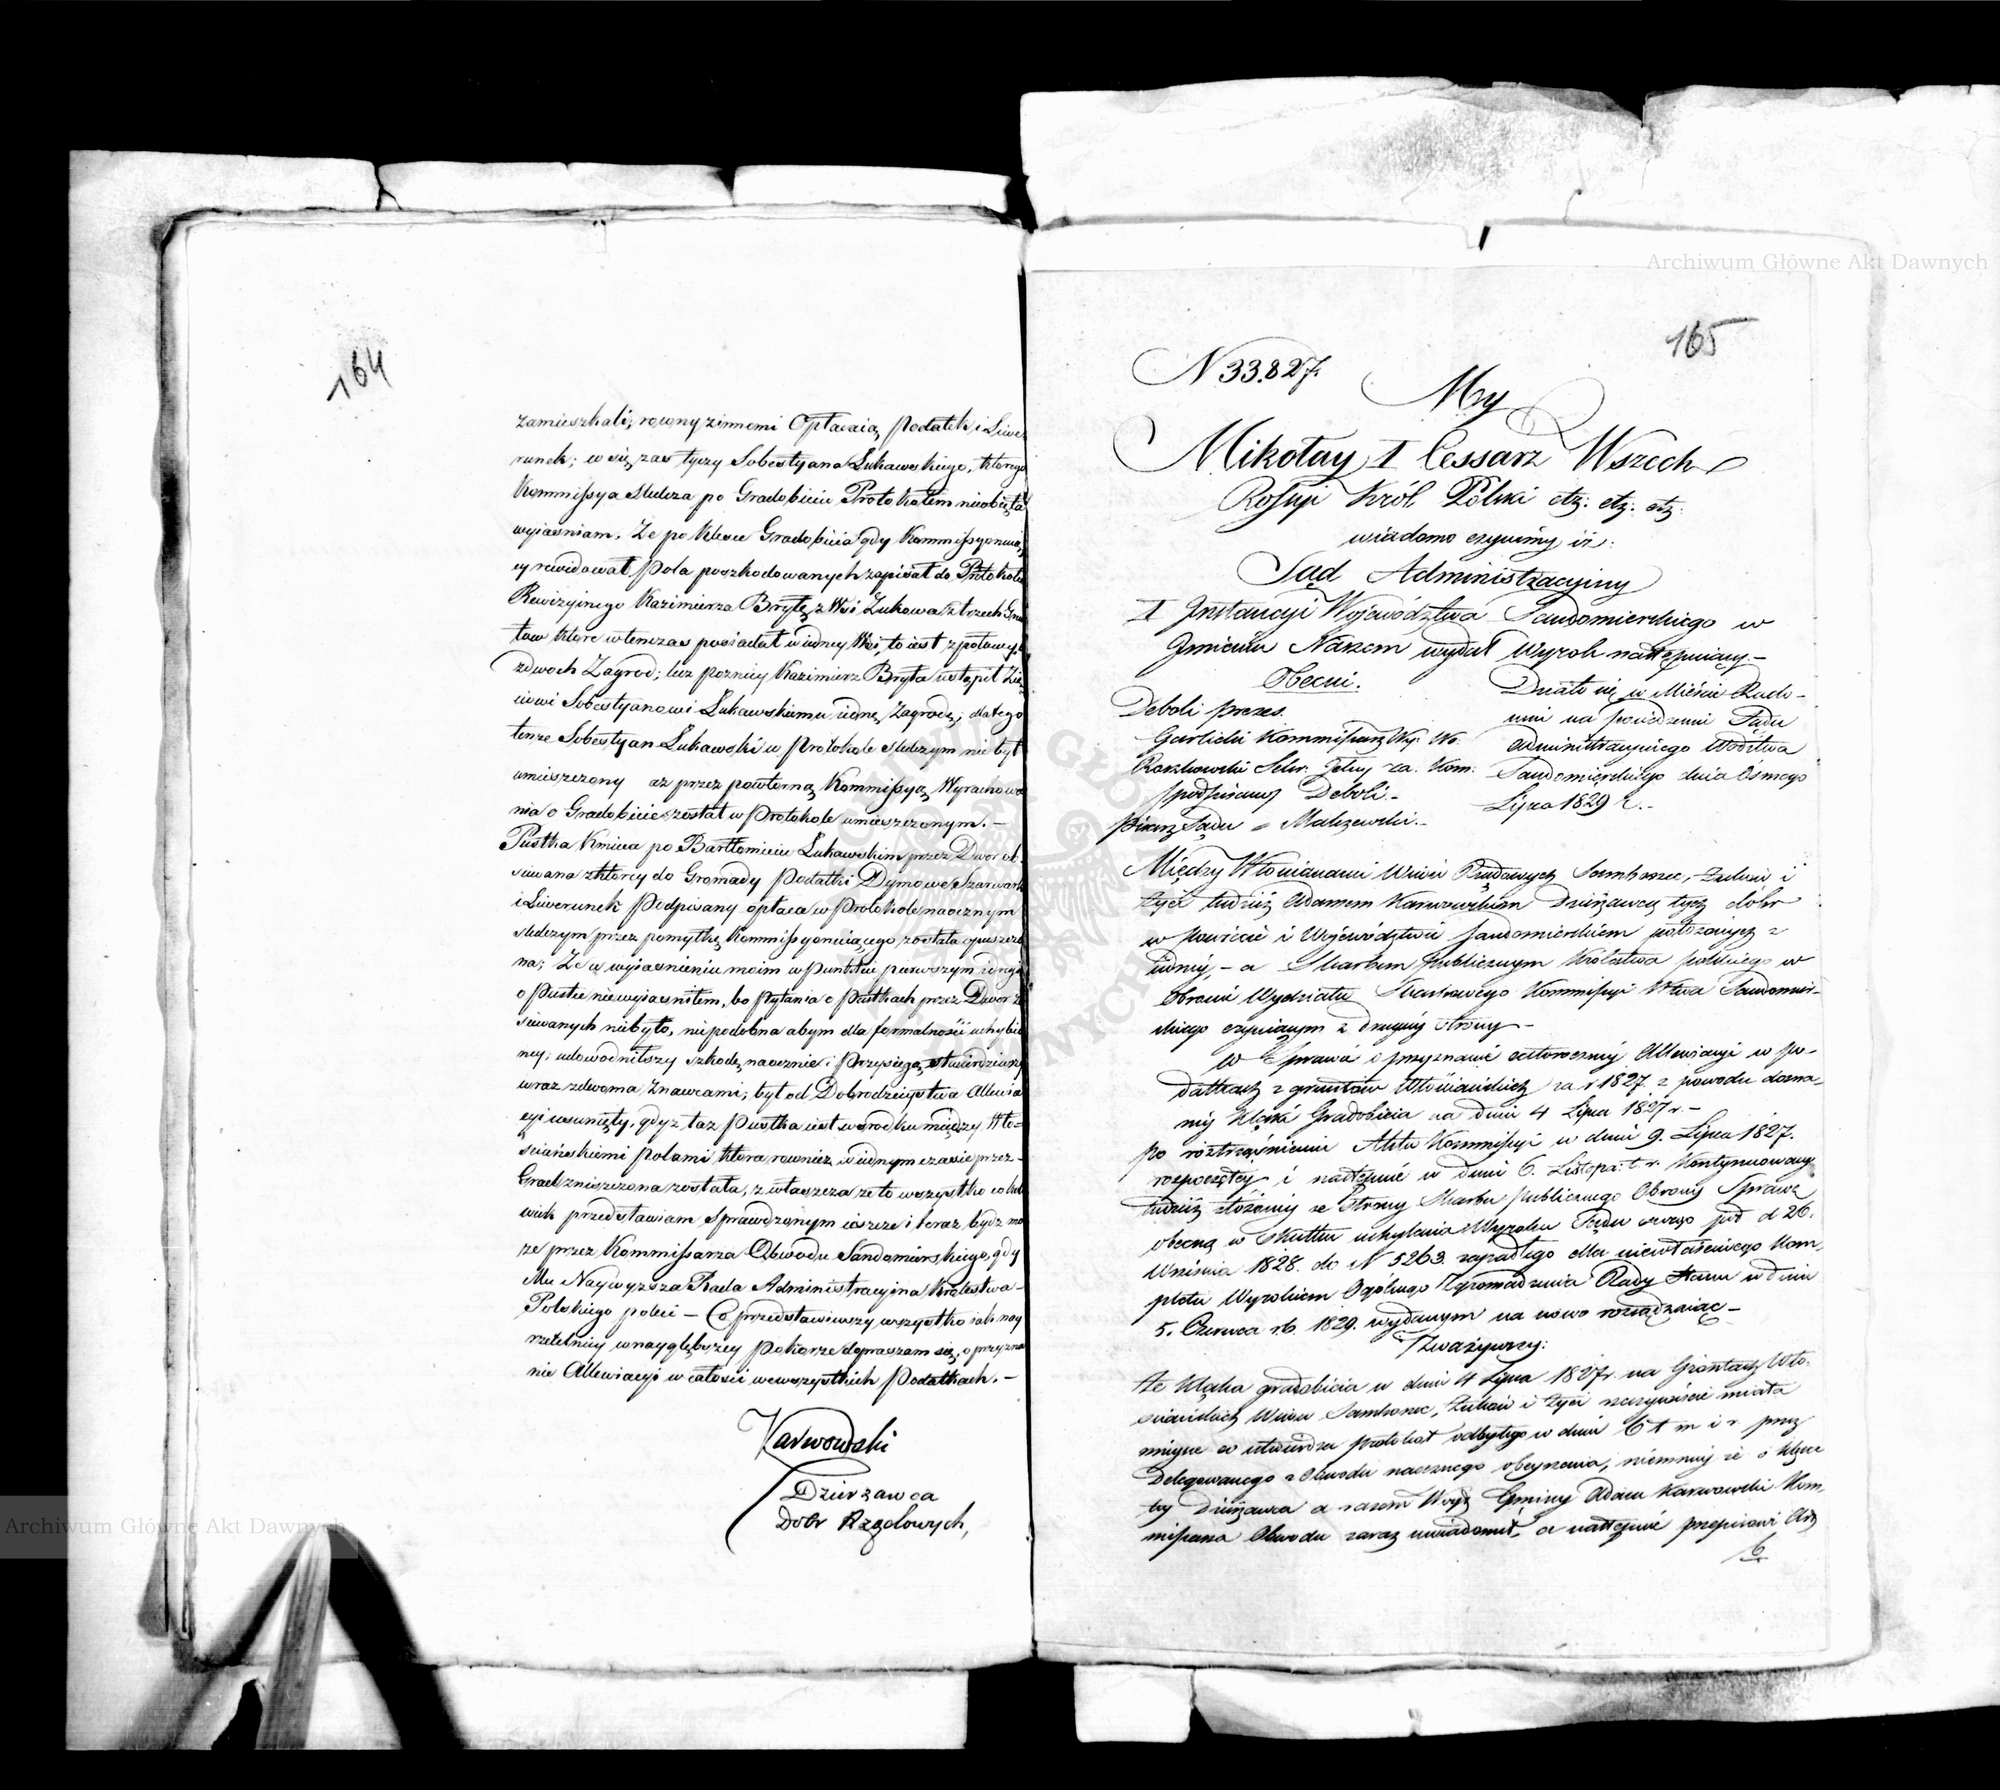 164
zamieszkali; rowny z innemi Opłacaią Podatek i Liwe-
runek; co się zas tyczy Sobestyana Łukawskiego, którego
Kommissya Sledcza po Gradobiciu Protokołem nieobięła
wyiasniam, Ze po Klesce Gradobicia gdy Kommissyonuią-
cy rewidował Pola poszkodowanych zapisał do Protokołu
Rewizyinego Kazimierza Bryłę z Wsi Zukowa z trzech Gru-
tow które wtenczas posiadał w iedney Wsi, to iest z połowy i
zdwoch Zagrod; lecz pozniey Kazimierz Bryła ustąpił Zię-
ciowi Sobestyanowi Łukawskiemu iednę Zagrodę; dlatego
tenże Sobestyan Łukawski w Protokole sledczym nie był
umieszczony aż przez powtorną Kommissyą Wyrachowa
nia o Gradobicie został w Protokole umieszczonym. —
Pustka Kmieca po Bartłomieiu Łukawskim przez Dwor ob-
siewana z ktorey do Gromady Podatki Dymowe Szarwark
i Liwerunek Podpisany opłaca w Protokole naocznym
sledczym przez pomyłkę Kommissyonuiącego została opuszczo
na; Ze w wyiasnieniu moim w punkcie pierwszym
o Pustce niewyiasniłem, bo Pytania o Pustkach przez Dwor
siewanych niebyło, niepodobna abym dla formalności uchybio
ney; udowodniłszy szkodę naocznie i Przysięgą stwierdzoną
wraz zdwoma Znawcami, był od Dobrodzieystwa Allewia
cyi usunięty, gdyz taz Pustka iest w srodku między Wło-
sciańskiemi polami która rownież w iednym czasie przez
Grad zniszczona została, zwłaszcza ze to wszystko cokol
wiek przedstawiam Sprawdzonym ieszcze i teraz bydz mo
że przez Kommissarza Obwodu Sandomirskiego, gdy
Mu Naywyższa Rada Administracyina Krolestwa
Polskiego poleci — Co przedstawiwszy wszystko iak nay
rzetelniey w naygłębszey Pokorze dopraszam się, o przyzna
nie Allewiacyi w całosci wewszystkich Podatkach. —
Karwowski
Dzierżawca
Dobr Rządowych,
165
N 33.827.
My
Mikołay I Cessarz Wszech
Rossyi Król Polski etz: etz: etz:
wiadomo czynimy iż:
Sąd Administracyiny
I Instancyi Województwa Sandomierskiego w
Imieniu Naszem wydał Wyrok następuiący. —
Obecni.
Deboli prezes.
Garlicki Kommissarz Wy. Wo:
Raszkowski Sekr. Jelny za. Kom:
podpisano Deboli. —
Pisarz Sądu Malczewski. —
Działo się w Mieście Rado-
miu na posiedzeniu Sądu
administracyinego Wodztwa
Sandomierskiego dnia Osmego
Lipca 1829 r. —
Między Włościanami Wsiów Rządowych Samborzec, Zukow i
Łysi tudzież Adamem Karwowskim Dzierżawcą tych dobr
w Powiecie i Województwie Sandomierskiem położonych z
iedney, — a Skarbem Publicznym Krolestwa polskiego w
Obronie Wydziału Skarbowego Kommissyi Wtwa Sandomier-
skiego czyniącym z drugiey strony —
W Sprawie o przyznanie całoroczney Allewiacyi w po-
datkach z gruntów Włościańskich za r 1827 z powodu dozna-
ney Klęski Gradobicia na dniu 4 Lipca 1827 r. —
po roztrząśnieniu Aktu Kommissyi w dniu 9. Lipca 1827.
rozpoczętey i następnie w dniu 6. Listopa: t. r. Kontynuowaney
tudzież złożoney ze Strony Skarbu publicznego Obrony Sprawę
obecną w skutku uchylenia Wyroku Sądu swego pod d 26.
Września 1828. do N 5263 zapadłego dla niewłaściwego Kom
pletu Wyrokiem Ogólnego Zgromadzenia Rady Stanu w dniu
5. Czerwca r.b. 1829. wydanym na nowo rozsądzaiąc —
Zważywszy:
że klęska gradobicia w dniu 4 Lipca 1827 r. na Gruntach Wło-
sciańskich Wsiów Samborzec, Zukow i Łysi rzeczywiście miała
mieysce co utwierdza protokół odbytego w dniu 6 t m i r przez
Delegowanego z Obwodu naocznego obeyrzenia, niemniey że o klęsce
tey Dzierżawca a razem Woyt Gminy Adam Karwowski Kom
missarza Obwodu zaraz uwiadomił, a następnie przepisowi Arty
6
Archiwum Główne Akt Dawnych
Archiwum Główne Akt Dawnych